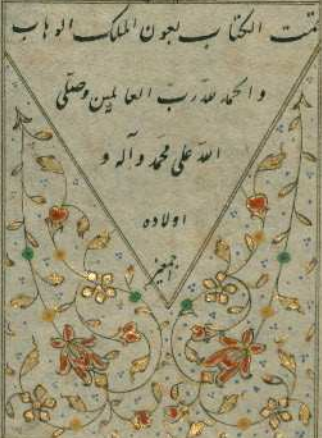 تمت الکتاب بعون الملک الوهاب
والحمد لله رب العالمین وصلی
الله علی محمد وآله و
اولاده
اجمعین